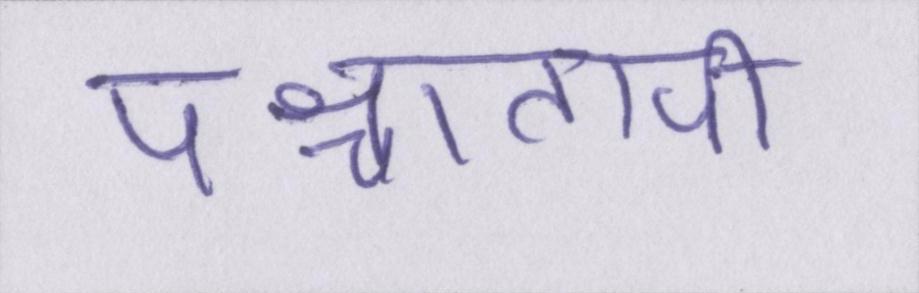 पश्चातापी